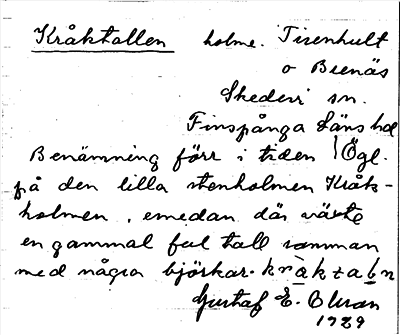 Kråktallen holme. Tisenhult
o Brenäs
Skedevi sn.
Finspånga Läns hd
Benämning förr i tiden / Ögl.
på den lilla stenholmen Kråk-
holmen, emedan där växte
en gammal ful tall samman
med några björkar.
Gustaf E. Olsson
1929